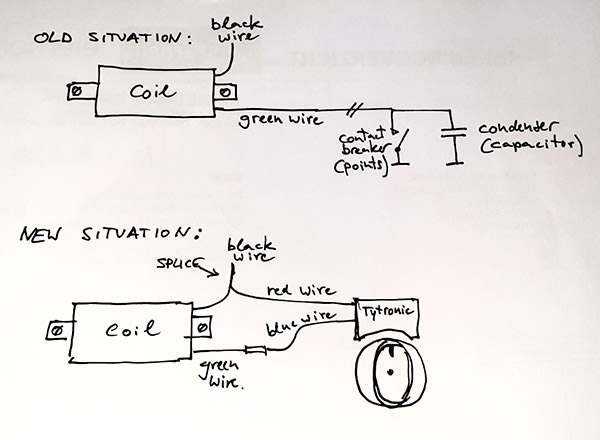 OLD SITUATION:
black
wire
Coil
green wire
contact
breaker
(points)
condenser
(capacitor)
NEW SITUATION:
black
wire
SPLICE
red wire
Tytronic
blue wire
Coil
green
wire.